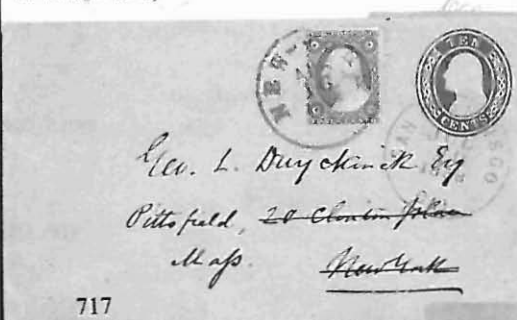 TEN
CENTS
NEW-
SAN
SCO
Geo. L. Duyckinck Esq
Pittsfield, 20 Clinton Place
Mass.
New York
717